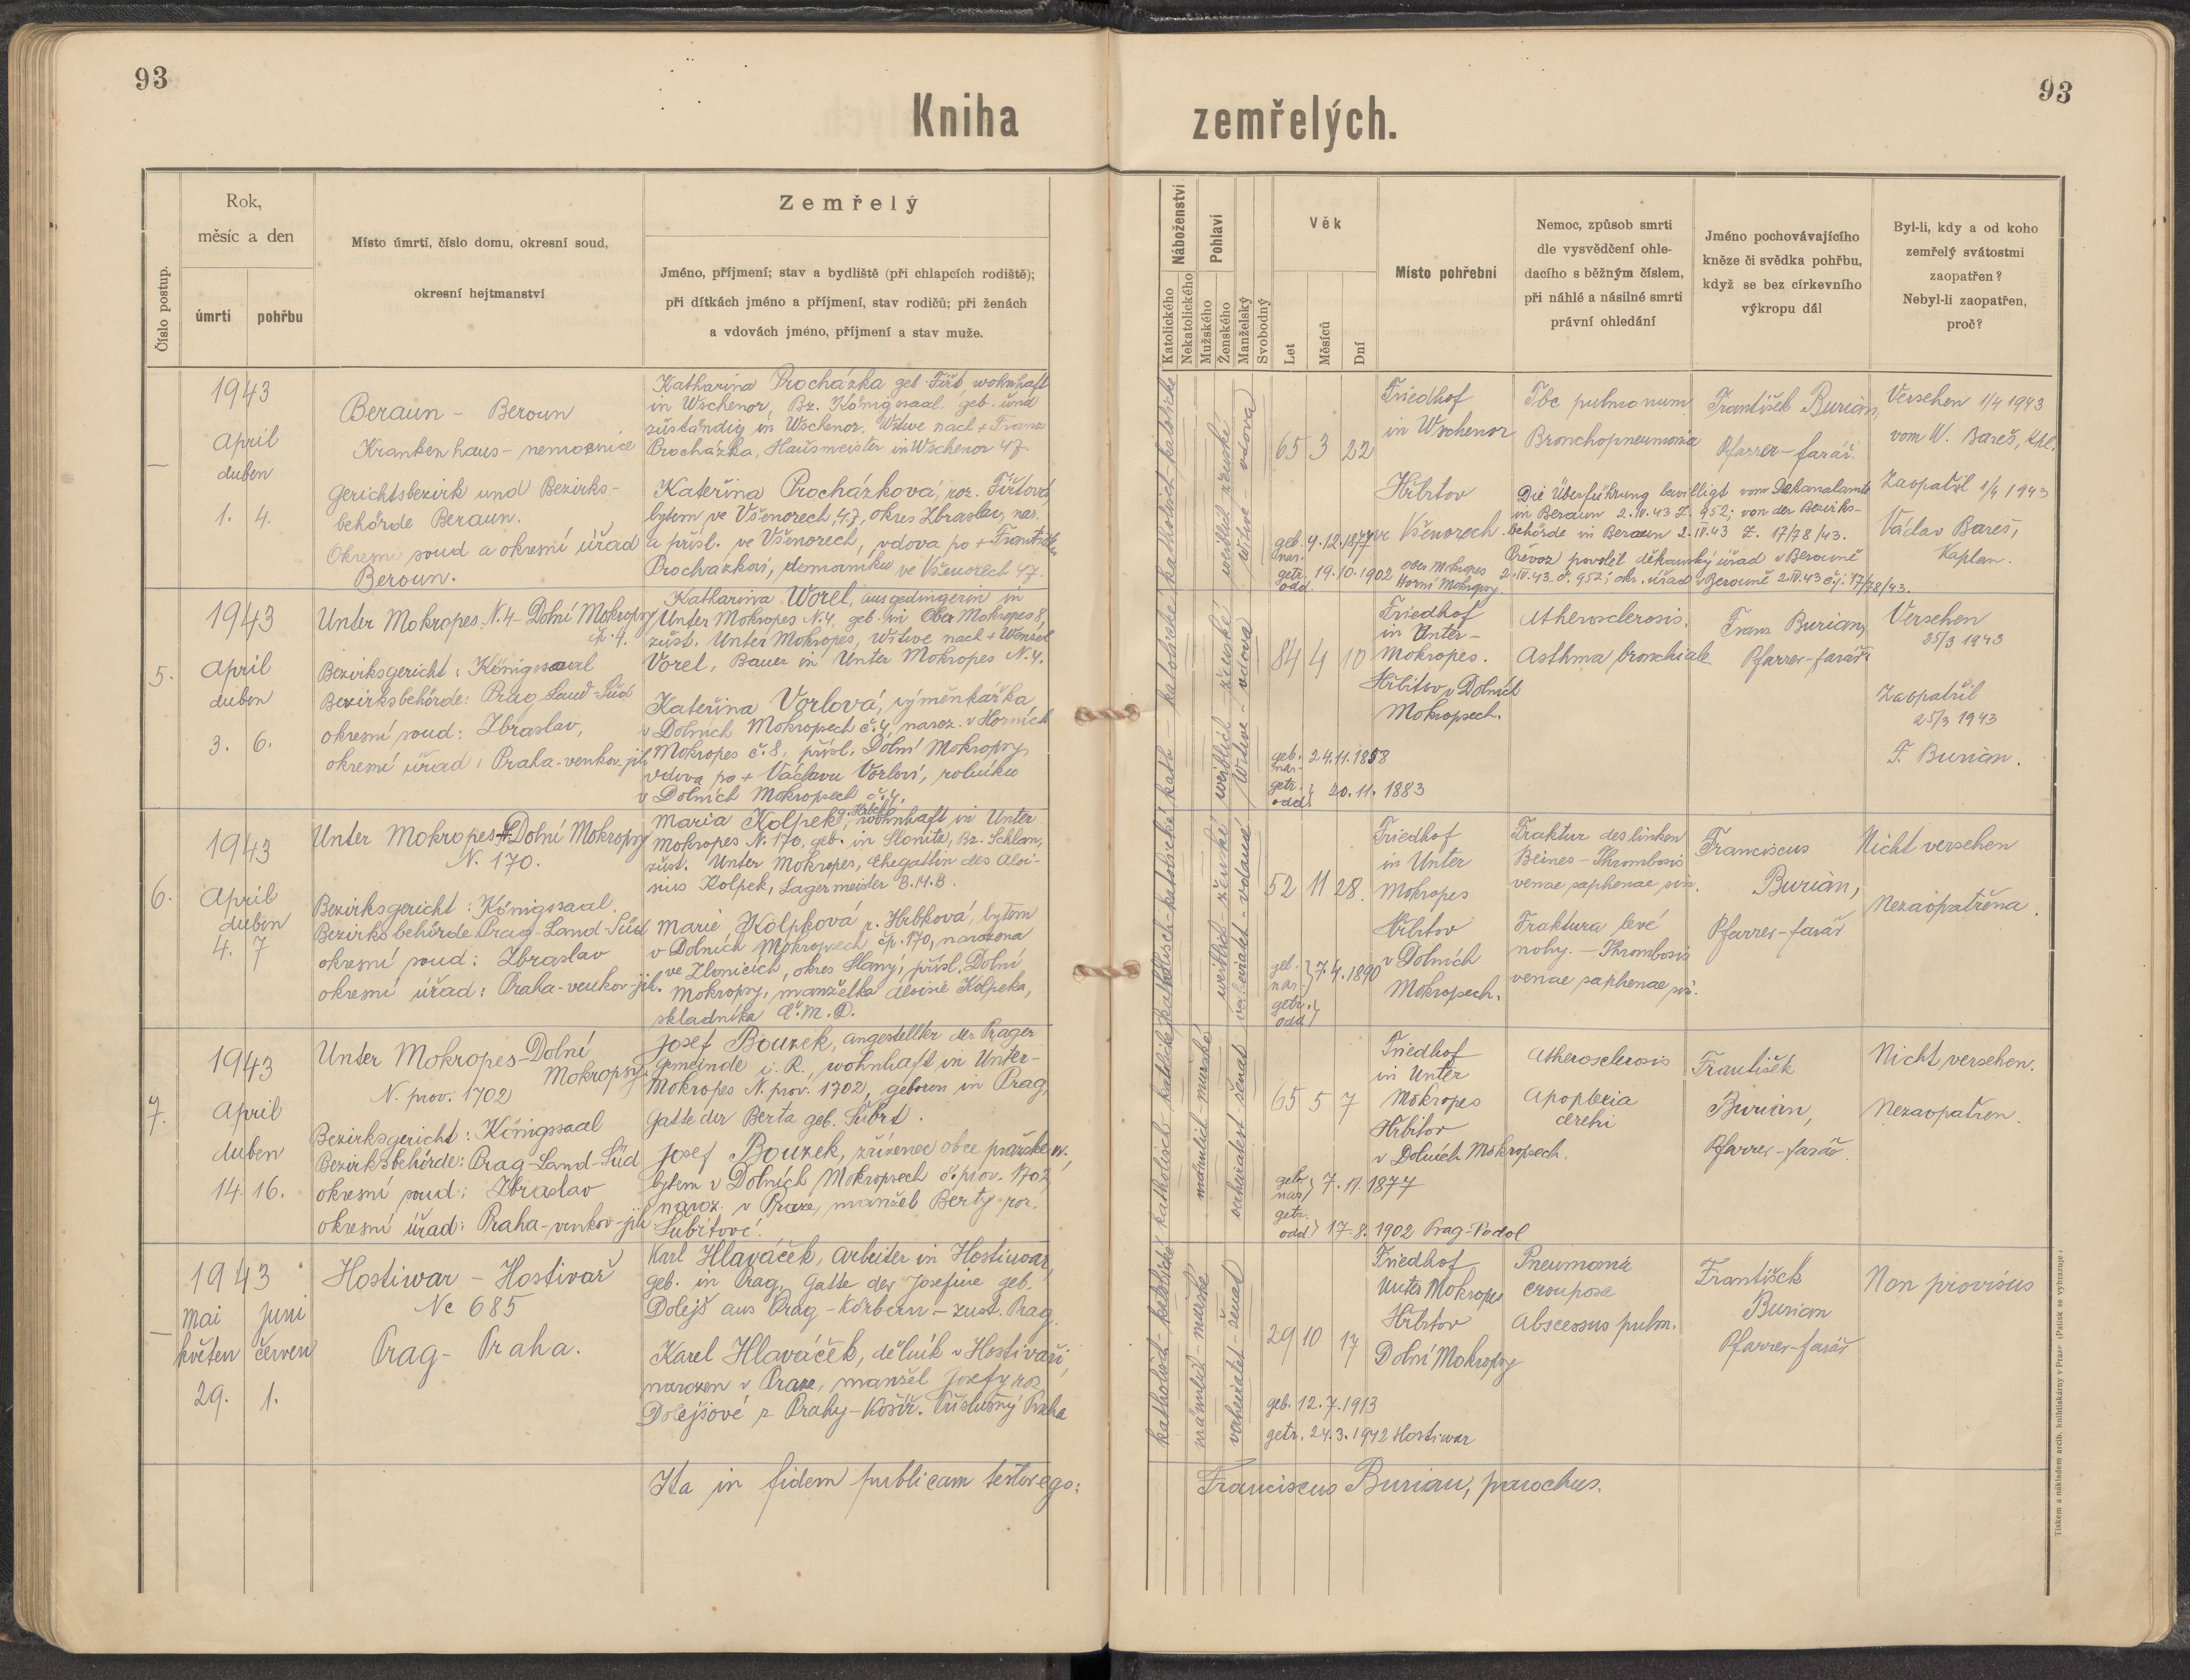 93
Kniha
Číslo postup.
Rok,
měsíc a den
úmrtí
pohřbu
Místo úmrtí, číslo domu, okresní soud,
okresní hejtmanství
Zemřelý
Jméno, příjmení; stav a bydliště (při chlapcích rodiště);
při dítkách jméno a příjmení, stav rodičů; při ženách
a vdovách jméno, příjmení a stav muže.
1943
April
duben
1. 4.
Beraun - Beroun
Krankenhaus - nemocnice
Gerichtsbezirk und Bezirks-
behörde Beraun.
Okresní soud a okresní úřad
Beroun.
Katharina Procházka geb. Fiřt, wohnhaft
in Wschenor, Bz. Königsaal, geb. und
zuständig in Wschenor, Witwe nach + Franz
Procházka, Hausmeister in Wschenor 47
Kateřina Procházková, roz. Fiřtová
bytem ve Všenorech 47, okres Zbraslav, nar.
a přísl. ve Všenorech, vdova po + Františku
Procházkovi, domovníku ve Všenorech 47.
5.
1943
April
duben
3. 6.
Unter Mokropes N.4 - Dolní Mokropsy
čp. 4.
Bezirksgericht: Königssaal
Bezirksbehörde: Prag-Land-Süd
okresní soud: Zbraslav,
okresní úřad: Praha-venkov-jih
Katharina Worel, Ausgedingerin in
Unter Mokropes N.4, geb. in Ober Mokropes 8,
zust. Unter Mokropes, Witwe nach + Wenzel
Vorel, Bauer in Unter Mokropes N.4.
Kateřina Vorlová, výměnkářka
v Dolních Mokropsech č.4, naroz. v Horních
Mokropes č.8, přísl. Dolní Mokropsy
vdova po + Václavu Vorlovi, rolníku
v Dolních Mokropsech č.4.
6.
1943
April
duben
4. 7
Unter Mokropes - Dolní Mokropsy
N. 170.
Bezirksgericht: Königssaal.
Bezirksbehörde Prag-Land-Süd
okresní soud: Zbraslav
okresní úřad: Praha-venkov-jih.
Maria Kolpek, g. Hrbek, wohnhaft in Unter
Mokropes N. 170, geb. in Slonitz, Bz. Schlan,
zust. Unter Mokropes, Ehegattin des Aloi-
sius Kolpek, Lagermeister B.M.B.
Marie Kolpková r. Hrbková, bytem
v Dolních Mokropsech čp. 170, narozena
ve Zlonicích, okres Slaný, přísl. Dolní
Mokropsy, manželka Aloise Kolpeka,
skladníka Č.M.D.
7.
1943
April
duben
14. 16.
Unter Mokropes - Dolní
Mokropsy
N. prov. 1702
Bezirksgericht: Königssaal
Bezirksbehörde: Prag-Land-Süd
okresní soud: Zbraslav
okresní úřad: Praha-venkov-jih
Josef Bouzek, Angestellter der Prager
Gemeinde i. R., wohnhaft in Unter-
Mokropes N. prov. 1702, geboren in Prag,
Gatte der Berta geb. Šubrt.
Josef Bouzek, zřízenec obce pražské v.v.,
bytem v Dolních Mokropsech č. prov. 1702
naroz. v Praze, manžel Berty roz.
Šubrtové.
1943
Mai Juni
květen červen
29. 1.
Hostiwar - Hostivař
Nc 685
Prag - Praha.
Karl Hlaváček, Arbeiter in Hostiwar,
geb. in Prag, Gatte der Josefine geb.
Dolejš aus Prag-Körbern - zust. Prag.
Karel Hlaváček, dělník v Hostivaři,
narozen v Praze, manžel Josefy roz.
Dolejšové z Prahy-Košíř. Příslušný Praha
Ita in fidem publicam testor ego:
93
zemřelých.
Náboženství
Katolického
Nekatolického
Pohlaví
Mužského
Ženského
Manželský
Svobodný
Věk
Let
Měsíců
Dní
Místo pohřební
Nemoc, způsob smrti
dle vysvědčení ohle-
dacího s běžným číslem,
při náhlé a násilné smrti
právní ohledání
Jméno pochovávajícího
kněze či svědka pohřbu,
když se bez církevního
výkropu dál
Byl-li, kdy a od koho
zemřelý svátostmi
zaopatřen?
Nebyl-li zaopatřen,
proč?
katholisch - katolické
weiblich ženské
Witwe - vdova
65 3 22
geb. 9.12.1877
nar.
getr. 19.10.1902 Ober Mokropes
odd. Horní Mokropsy.
Friedhof
in Wschenor
Hřbitov
ve Všenorech.
Tbc pulmonum
Bronchopneumonia
Die Überführung bewilligt vom Dekanalamte
in Beraun 2.IV.43 Z. 952; von der Bezirks-
behörde in Beraun 2.IV.43 Z. 17/78/43.
Převoz povolil děkanský úřad v Berouně
2.IV.43. č. 952; okr. úřad v Berouně 2.IV.43 čj. 17/78/43.
František Burian,
Pfarrer - farář.
Versehen 1/4 1943
vom W. Bareš, Kpl.
Zaopatřil 1/4 1943
Václav Bareš,
Kaplan.
kath - katolické
weiblich - ženské
Witwe - vdova
84 4 10
geb. 24.11.1858
nar.
getr. 20.11.1883
odd.
Friedhof
in Unter-
Mokropes.
Hřbitov v Dolních
Mokropsech.
Atherosclerosis.
Asthma bronchiale
Franz Burian,
Pfarrer - farář
Versehen
25/3 1943
Zaopatřil
25/3 1943
F. Burian.
katholisch - katolické
weiblich - ženské
verheiratet - vdaná
52 11 28.
geb. 7.4.1890
nar.
getr.
odd
Friedhof
in Unter
Mokropes
Hřbitov
v Dolních
Mokropsech.
Fraktur des linken
Beines - Thrombosis
venae saphenae sin.
Fraktura levé
nohy. - Thrombosis
venae saphenae sin.
Franciscus
Burian,
Pfarrer - farář
Nicht versehen
Nezaopatřena.
katholisch katolické
männlich mužské
verheiratet - ženat
65 5 7
geb. 7.11.1877
nar.
getr.
odd. 17.8.1902 Prag-Podol
Friedhof
in Unter
Mokropes
Hřbitov
v Dolních Mokropsech.
Atherosclerosis
Apoplexia
cerebri
František
Burian,
Pfarrer - farář.
Nicht versehen.
Nezaopatřen.
katholisch - katolické
männlich - mužské
verheiratet - ženat
29 10 17
geb. 12.7.1913
getr. 24.3.1942 Hostiwar
Friedhof
Unter Mokropes
Hřbitov
Dolní Mokropsy
Pneumonia
crouposa
Abscessus pulm.
František
Burian
Pfarrer - farář
Non provisus
Franciscus Burian, parochus.
Tiskem a nákladem arcib. knihtiskárny v Praze (Patisk se vyhrazuje)